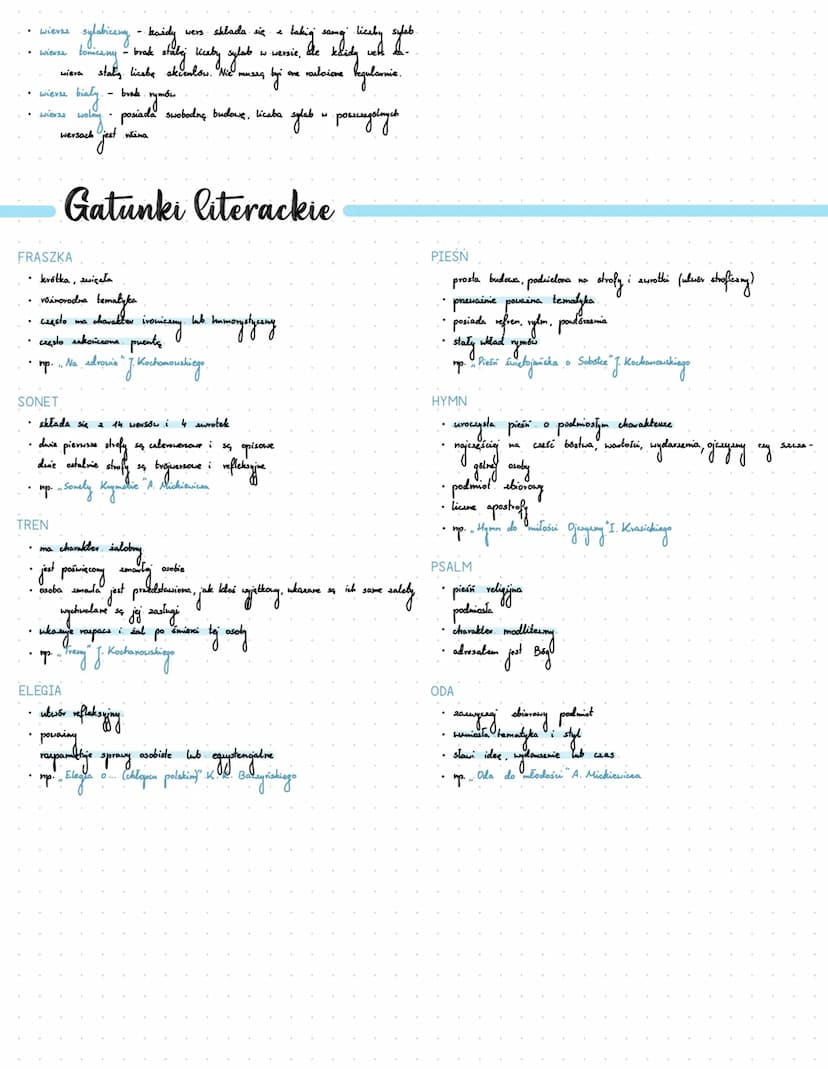 • wiersz sylabiczny - każdy wers składa się z takiej samej liczby sylab
• wiersz toniczny - brak stałej liczby sylab w wersie, ale każdy wers za-
wiera stałą liczbę akcentów. Nie muszą być one rozłożone regularnie.
• wiersz biały - brak rymów
• wiersz wolny - posiada swobodną budowę, liczba sylab w poszczególnych
wersach jest różna
Gatunki literackie
FRASZKA
• krótka, zwięzła
• różnorodna tematyka
• często ma charakter ironiczny lub humorystyczny
• często zakończona puentą
• np. „Na zdrowie" J. Kochanowskiego
SONET
• składa się z 14 wersów i 4 zwrotek
• dwie pierwsze strofy są czterowersowe i są opisowe
dwie ostatnie strofy są trójwersowe i refleksyjne
• np. „Sonety Krymskie" A. Mickiewicza
TREN
• ma charakter żałobny
• jest poświęcony zmarłej osobie
• osoba zmarła jest przedstawiona, jak ktoś wyjątkowy, ukazane są ich same zalety
wychwalane są jej zasługi
• ukazuje rozpacz i żal po śmierci tej osoby
• np. „Treny" J. Kochanowskiego
ELEGIA
• utwór refleksyjny
• poważny
rozpamiętuje sprawy osobiste lub egzystencjalne
• np. „Elegia o... (chłopcu polskim)" K. K. Baczyńskiego
PIEŚŃ
prosta budowa, podzielona na strofy i zwrotki (utwór stroficzny)
• przeważnie poważna tematyka
• posiada refren, rytm, powtórzenia
• stały układ rymów
np. „Pieśń świętojańska o Sobótce" J. Kochanowskiego
HYMN
• uroczysta pieśń o podniosłym charakterze
• najczęściej na cześć bóstwa, wartości, wydarzenia, ojczyzny czy szcze-
gólnej osoby
• podmiot zbiorowy
• liczne apostrofy
• np. „Hymn do miłości Ojczyzny" I. Krasickiego
PSALM
• pieśń religijna
podniosła
• charakter modlitewny
• adresatem jest Bóg
ODA
• zazwyczaj zbiorowy podmiot
• wzniosła tematyka i styl
• sławi ideę, wydarzenie lub czas
• np. „Oda do młodości" A. Mickiewicza